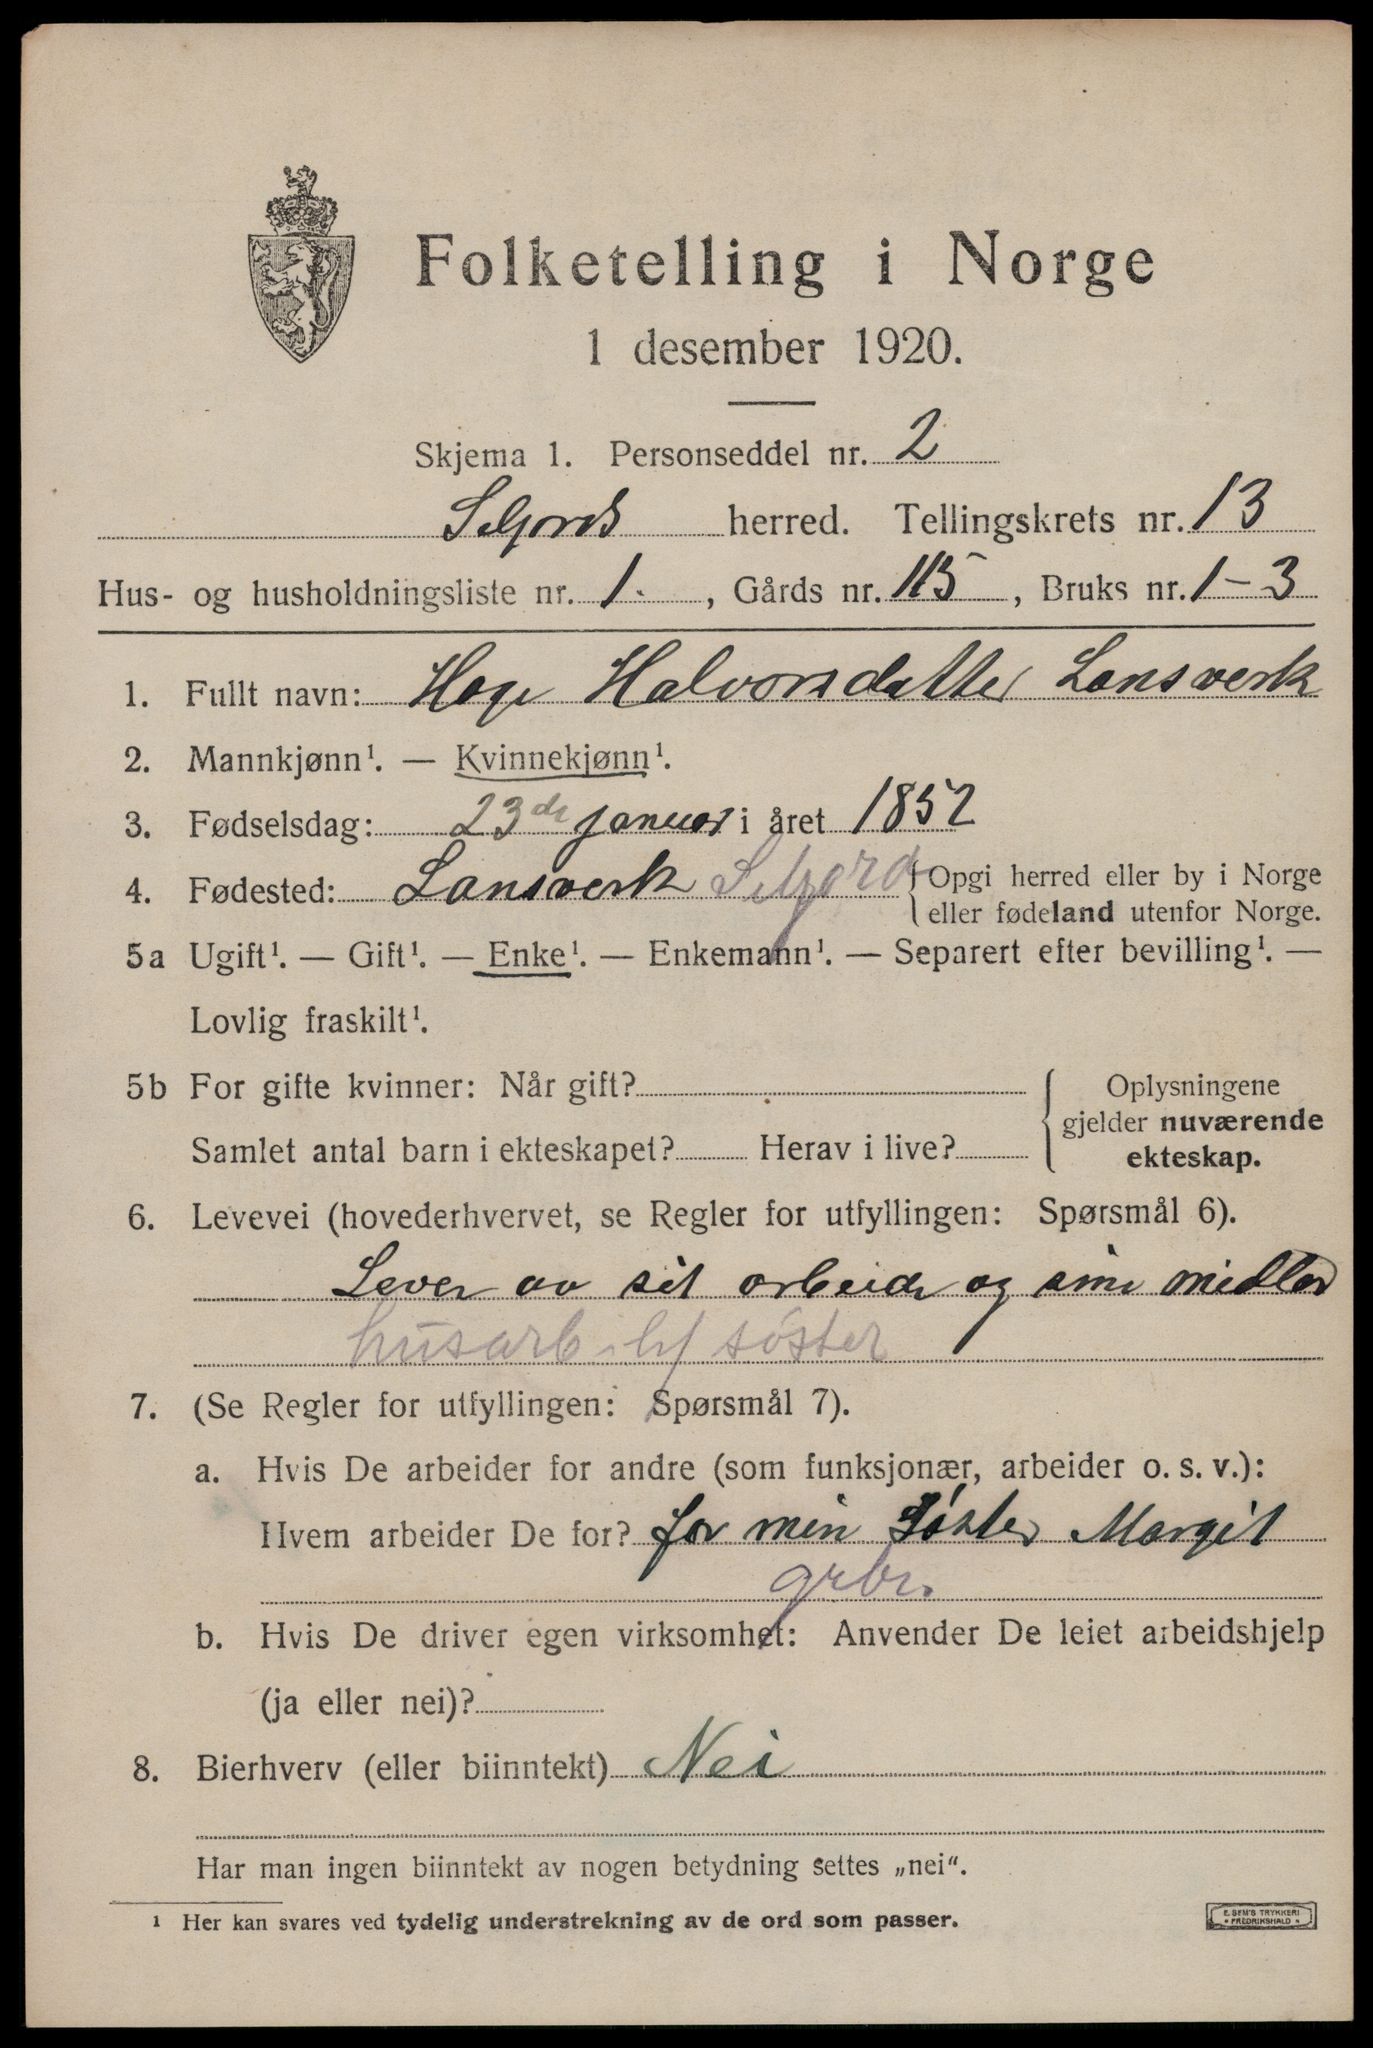 Folketelling i Norge
1 desember 1920.
Skjema 1. Personseddel nr. 2
Seljord herred. Tellingskrets nr. 13
Hus- og husholdningsliste nr. 1. , Gårds nr. 115 , Bruks nr. 1-3
1. Fullt navn: Hage Halvorsdatter Lansverk
2. Mannkjønn¹. — Kvinnekjønn¹.
3. Fødselsdag: 23de januar i året 1852
4. Fødested: Lansverk Seljord { Opgi herred eller by i Norge
eller fødeland utenfor Norge.
5a Ugift¹. — Gift¹. — Enke¹. — Enkemann¹. — Separert efter bevilling¹. —
Lovlig fraskilt¹.
5b For gifte kvinner: Når gift?
Samlet antal barn i ekteskapet? Herav i live?
Oplysningene
gjelder nuværende
ekteskap.
6. Levevei (hovederhvervet, se Regler for utfyllingen: Spørsmål 6).
Lever av sit arbeide og sine midler
husarb. søster
7. (Se Regler for utfyllingen: Spørsmål 7).
a. Hvis De arbeider for andre (som funksjonær, arbeider o. s. v.):
Hvem arbeider De for? for min Søster Margit
grbr.
b. Hvis De driver egen virksomhet: Anvender De leiet arbeidshjelp
(ja eller nei)?
8. Bierhverv (eller biinntekt) Nei
Har man ingen biinntekt av nogen betydning settes „nei“.
¹ Her kan svares ved tydelig understrekning av de ord som passer.
E. SEM'S TRYKKERI
FREDRIKSHALD